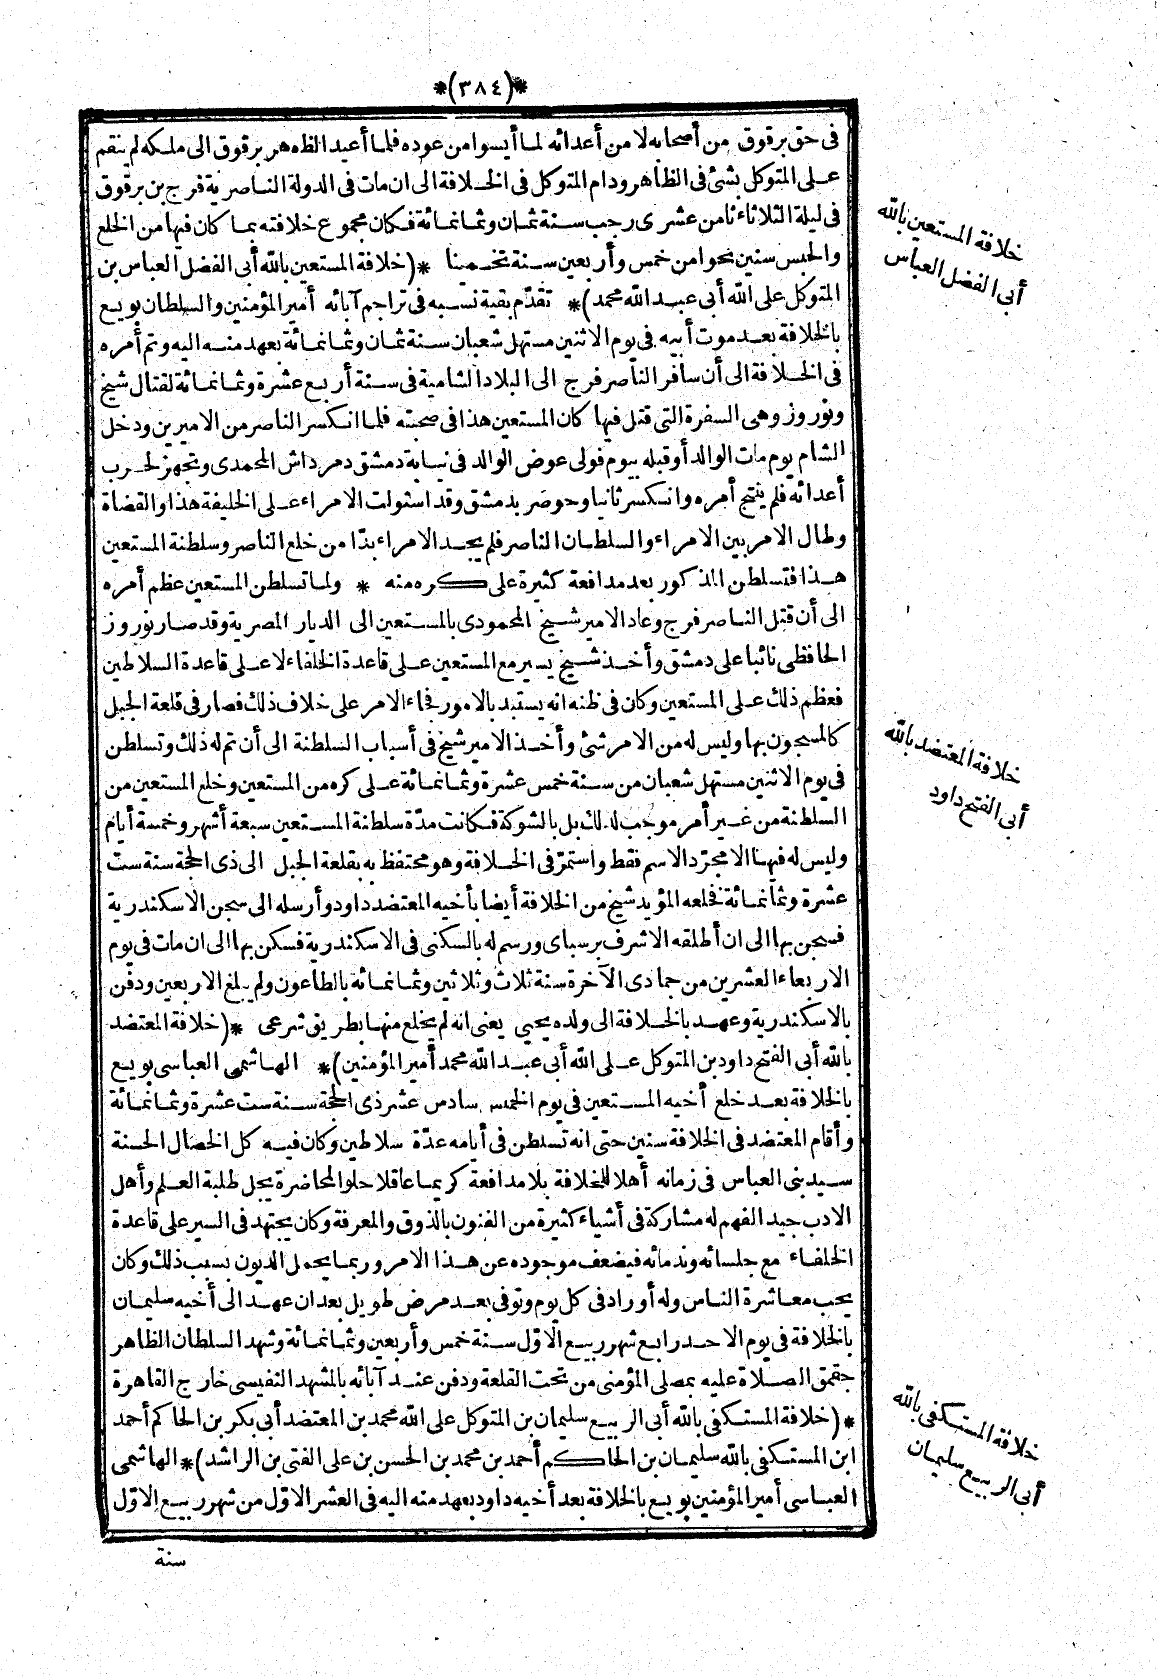 *(٣٨٤)*
فى حق برقوق من أصحابه لا من أعدائه لما أيسوا من عوده فلما أعيد الظاهر برقوق الى ملكه لم ينقم
على المتوكل بشئ فى الظاهر ودام المتوكل فى الخلافة الى ان مات فى الدولة الناصرية فرج بن برقوق
فى ليلة الثلاثاء ثامن عشرى رجب سنة ثمان وثمانمائة فكان مجموع خلافته بما كان فيها من الخلع
والحبس سنين نحوا من خمس وأربعين سنة تخمينا *(خلافة المستعين بالله أبى الفضل العباس بن
المتوكل على الله أبى عبد الله محمد)* تقدّم بقية نسبه فى تراجم آبائه أمير المؤمنين والسلطان بويع
بالخلافة بعد موت أبيه فى يوم الاثنين مستهل شعبان سنة ثمان وثمانمائة بعهد منه اليه وتم أمره
فى الخلافة الى أن سافر الناصر فرج الى البلاد الشامية فى سنة أربع عشرة وثمانمائة لقتال شيخ
ونوروز وهى السفرة التى قتل فيها كان المستعين هذا فى صحبته فلما انكسر الناصر من الاميرين ودخل
الشام يوم مات الوالد أو قبله بيوم فولى عوض الوالد فى نيابة دمشق دمرداش المحمدى وتجهز لحرب
أعدائه فلم ينتج أمره وانكسر ثانيا وحوصر بدمشق وقد استولت الامراء على الخليفة هذا والقضاة
وطال الامر بين الامراء والسلطان الناصر فلم يجد الامراء بدّا من خلع الناصر وسلطنة المستعين
هذا فتسلطن المذكور بعد مدافعة كثيرة على كره منه * ولما تسلطن المستعين عظم أمره
الى أن قتل الناصر فرج وعاد الامير شيخ المحمودى بالمستعين الى الديار المصرية وقد صار نوروز
الحافظى نائبا على دمشق وأخذ شيخ يسير مع المستعين على قاعدة الخلفاء لا على قاعدة السلاطين
فعظم ذلك على المستعين وكان فى ظنه انه يستبد بالامور فجاء الامر على خلاف ذلك فصار فى قلعة الجبل
كالمسجون بها وليس له من الامر شئ وأخذ الامير شيخ فى أسباب السلطنة الى أن تم له ذلك وتسلطن
فى يوم الاثنين مستهل شعبان من سنة خمس عشرة وثمانمائة على كره من المستعين وخلع المستعين من
السلطنة من غير أمر موجب لذلك بل بالشوكة فكانت مدّة سلطنة المستعين سبعة أشهر وخمسة أيام
وليس له فيها الا مجرّد الاسم فقط واستمرّ فى الخلافة وهو محتفظ به بقلعة الجبل الى ذى الحجة سنة ست
عشرة وثمانمائة فخلعه المؤيد شيخ من الخلافة أيضا بأخيه المعتضد داود وأرسله الى سجن الاسكندرية
فسجن بها الى ان أطلقه الاشرف برسباى ورسم له بالسكنى فى الاسكندرية فسكن بها الى ان مات فى يوم
الاربعاء العشرين من جمادى الآخرة سنة ثلاث وثلاثين وثمانمائة بالطاعون ولم يبلغ الاربعين ودفن
بالاسكندرية وعهد بالخلافة الى ولده يحيى يعنى انه لم يخلع منها بطريق شرعى *(خلافة المعتضد
بالله أبى الفتح داود بن المتوكل على الله أبى عبد الله محمد أمير المؤمنين)* الهاشمى العباسى بويع
بالخلافة بعد خلع أخيه المستعين فى يوم الخميس سادس عشر ذى الحجة سنة ست عشرة وثمانمائة
وأقام المعتضد فى الخلافة سنين حتى انه تسلطن فى أيامه عدّة سلاطين وكان فيه كل الخصال الحسنة
سيد بنى العباس فى زمانه أهلا للخلافة بلا مدافعة كريما عاقلا حلو المحاضرة يجل طلبة العلم وأهل
الادب جيد الفهم له مشاركة فى أشياء كثيرة من الفنون بالذوق والمعرفة وكان يجتهد فى السير على قاعدة
الخلفاء مع جلسائه وندمائه فيضعف موجوده عن هذا الامر وربما يحمل الديون بسبب ذلك وكان
يحب معاشرة الناس وله أوراد فى كل يوم وتوفى بعد مرض طويل بعد ان عهد الى أخيه سليمان
بالخلافة فى يوم الاحد رابع شهر ربيع الاوّل سنة خمس وأربعين وثمانمائة وشهد السلطان الظاهر
جقمق الصلاة عليه بمصلى المؤمنى من تحت القلعة ودفن عند آبائه بالمشهد النفيسى خارج القاهرة
*(خلافة المستكفى بالله أبى الربيع سليمان بن المتوكل على الله محمد بن المعتضد أبى بكر بن الحاكم أحمد
ابن المستكفى بالله سليمان بن الحاكم أحمد بن محمد بن الحسن بن على الفتى بن الراشد)* الهاشمى
العباسى أمير المؤمنين بويع بالخلافة بعد أخيه داود بعهد منه اليه فى العشر الاوّل من شهر ربيع الاوّل
سنة
خلافة المستعين بالله
أبى الفضل العباس
خلافة المعتضد بالله
أبى الفتح داود
خلافة المستكفى بالله
أبى الربيع سليمان